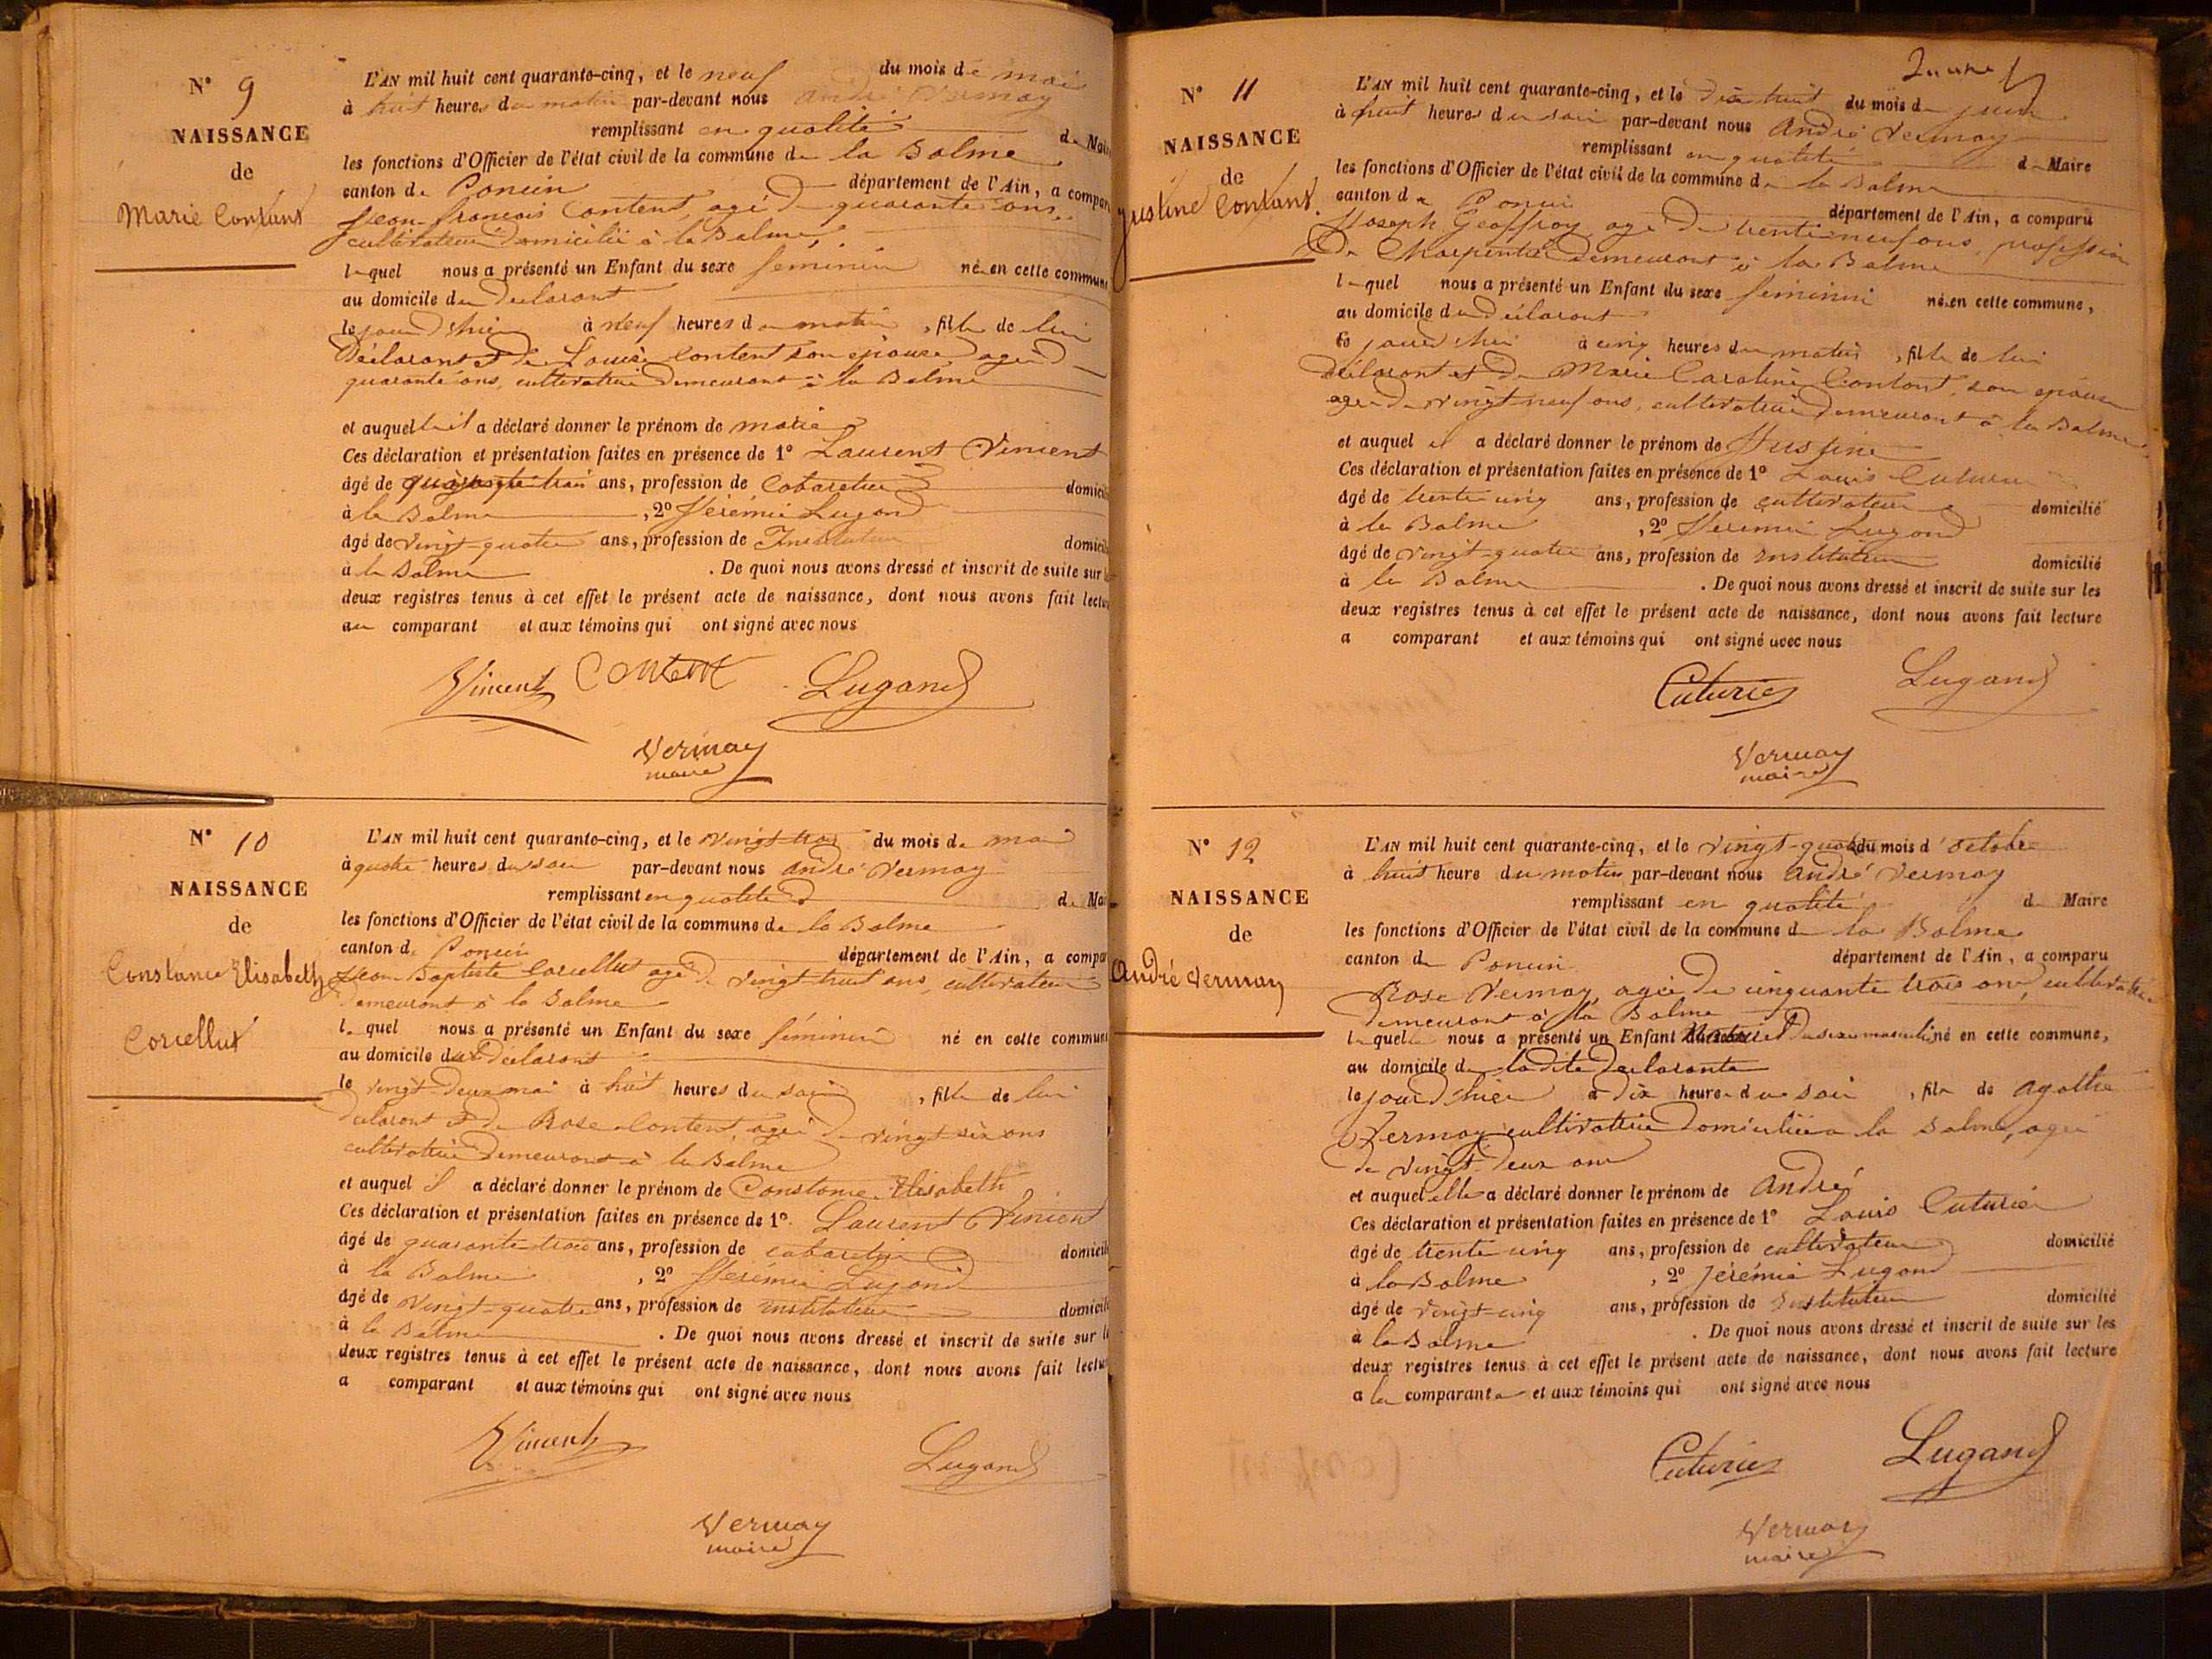 N° 9
NAISSANCE
de
Marie Contant
L'AN mil huit cent quarante-cinq, et le neuf du mois de mai
à huit heures du matin par-devant nous andré Vermay
remplissant en qualité de Maire
les fonctions d'Officier de l'état civil de la commune de la Balme
canton de Poncin département de l'Ain, a comparu
Jean-françois Content, agé de quarante ans,
cultivateur domicilié à la Balme,
lequel nous a présenté un Enfant du sexe feminin né en cette commune
au domicile du declarant
le jour d'hier à neuf heures du matin, fille de lui
Déclarant et de Louise Content son épouse agee de
quarante ans, cultivatrice demeurant à la Balme
et auquel il a déclaré donner le prénom de marie
Ces déclaration et présentation faites en présence de 1° Laurent Vincent
âgé de quarante trois ans, profession de Cabaretier domicilié
à la Balme, 2° Jérémie Lugand
âgé de vingt-quatre ans, profession de Instituteur domicilié
à la Balme. De quoi nous avons dressé et inscrit de suite sur les
deux registres tenus à cet effet le présent acte de naissance, dont nous avons fait lecture
au comparant et aux témoins qui ont signé avec nous
Vincent Content Lugand
Vermay
maire
N° 10
NAISSANCE
de
Constance Elisabeth
Corcellut
L'AN mil huit cent quarante-cinq, et le vingt-trois du mois de mai
à quatre heures du soir par-devant nous andré Vermay
remplissant en qualité de Maire
les fonctions d'Officier de l'état civil de la commune de la Balme
canton de Poncin département de l'Ain, a comparu
Jean Baptiste Corcellut agé de vingt-huit ans, cultivateur
demeurant à la Balme
lequel nous a présenté un Enfant du sexe féminin né en cette commune
au domicile du Déclarant
le vingt-deux mai à huit heures du soir, fille de lui
declarant et de Rose Content, agée de vingt six ans
cultivatrice demeurant à la Balme
et auquel il a déclaré donner le prénom de Constance Elisabeth
Ces déclaration et présentation faites en présence de 1° Laurent Vincent
âgé de quarante trois ans, profession de cabaretier domicilié
à la Balme, 2° Jérémie Lugand
âgé de vingt-quatre ans, profession de instituteur domicilié
à la Balme. De quoi nous avons dressé et inscrit de suite sur les
deux registres tenus à cet effet le présent acte de naissance, dont nous avons fait lecture
a comparant et aux témoins qui ont signé avec nous
Vincent Lugand
Vermay
maire
N° 11
NAISSANCE
de
Justine Contant.
L'AN mil huit cent quarante-cinq, et le dix huit du mois de juin
à huit heures du soir par-devant nous André Vermay
remplissant en qualité de Maire
les fonctions d'Officier de l'état civil de la commune de la Balme
canton de Poncin département de l'Ain, a comparu
Joseph Geoffroy agé de trente neuf ans, profession
De Charpentier demeurant à la Balme
lequel nous a présenté un Enfant du sexe féminin né en cette commune,
au domicile du déclarant
le jour d'hier à cinq heures du matin, fille de lui
déclarant et de Marie Caroline Contant, son épouse
agée de vingt neuf ans, cultivatrice demeurant à la Balme
et auquel il a déclaré donner le prénom de Justine
Ces déclaration et présentation faites en présence de 1° Louis Cuturier
âgé de trente cinq ans, profession de cultivateur domicilié
à la Balme, 2° Jérémie Lugand
âgé de vingt-quatre ans, profession de instituteur domicilié
à la Balme. De quoi nous avons dressé et inscrit de suite sur les
deux registres tenus à cet effet le présent acte de naissance, dont nous avons fait lecture
a comparant et aux témoins qui ont signé avec nous
Cuturier Lugand
Vermay
maire
N° 12
NAISSANCE
de
André Vermay
L'AN mil huit cent quarante-cinq, et le vingt-quatre du mois d'octobre
à huit heure du matin par-devant nous André Vermay
remplissant en qualité de Maire
les fonctions d'Officier de l'état civil de la commune de la Balme
canton de Poncin département de l'Ain, a comparu
Rose Vermay, agée de cinquante trois ans, cultivatrice
demeurant à la Balme
laquelle nous a présenté un Enfant du sexe masculin né en cette commune,
au domicile de ladite declarante
le jour d'hier à dix heure du soir, fils de agathe
Vermay cultivatrice domiciliée à la Balme, agée
de vingt-deux ans
et auquel elle a déclaré donner le prénom de André
Ces déclaration et présentation faites en présence de 1° Louis Cuturier
âgé de trente cinq ans, profession de cultivateur domicilié
à la Balme, 2° Jérémie Lugand
âgé de vingt-cinq ans, profession de Instituteur domicilié
à la Balme. De quoi nous avons dressé et inscrit de suite sur les
deux registres tenus à cet effet le présent acte de naissance, dont nous avons fait lecture
a la comparante et aux témoins qui ont signé avec nous
Cuturier Lugand
Vermay
maire